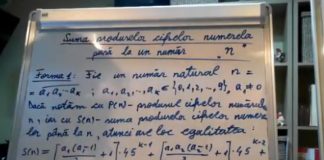 Suma produselor cifrelor numerelor
până la un număr "n"
Forma 1: Fie un număr natural n =
= a₁a₂...aₖ, a₁,a₂,...,aₖ ∈ {0,1,2,...,9}, a₁≠0
Dacă notăm cu P(n) - produsul cifrelor numărului
n, iar cu S(n) - suma produselor cifrelor numere-
lor până la n, atunci are loc egalitatea:
S(n) = [a₁(a₁-1)/2 + 1]·45ᵏ⁻¹ + [a₁a₂(a₂-1)/2 + 1]·45ᵏ⁻²